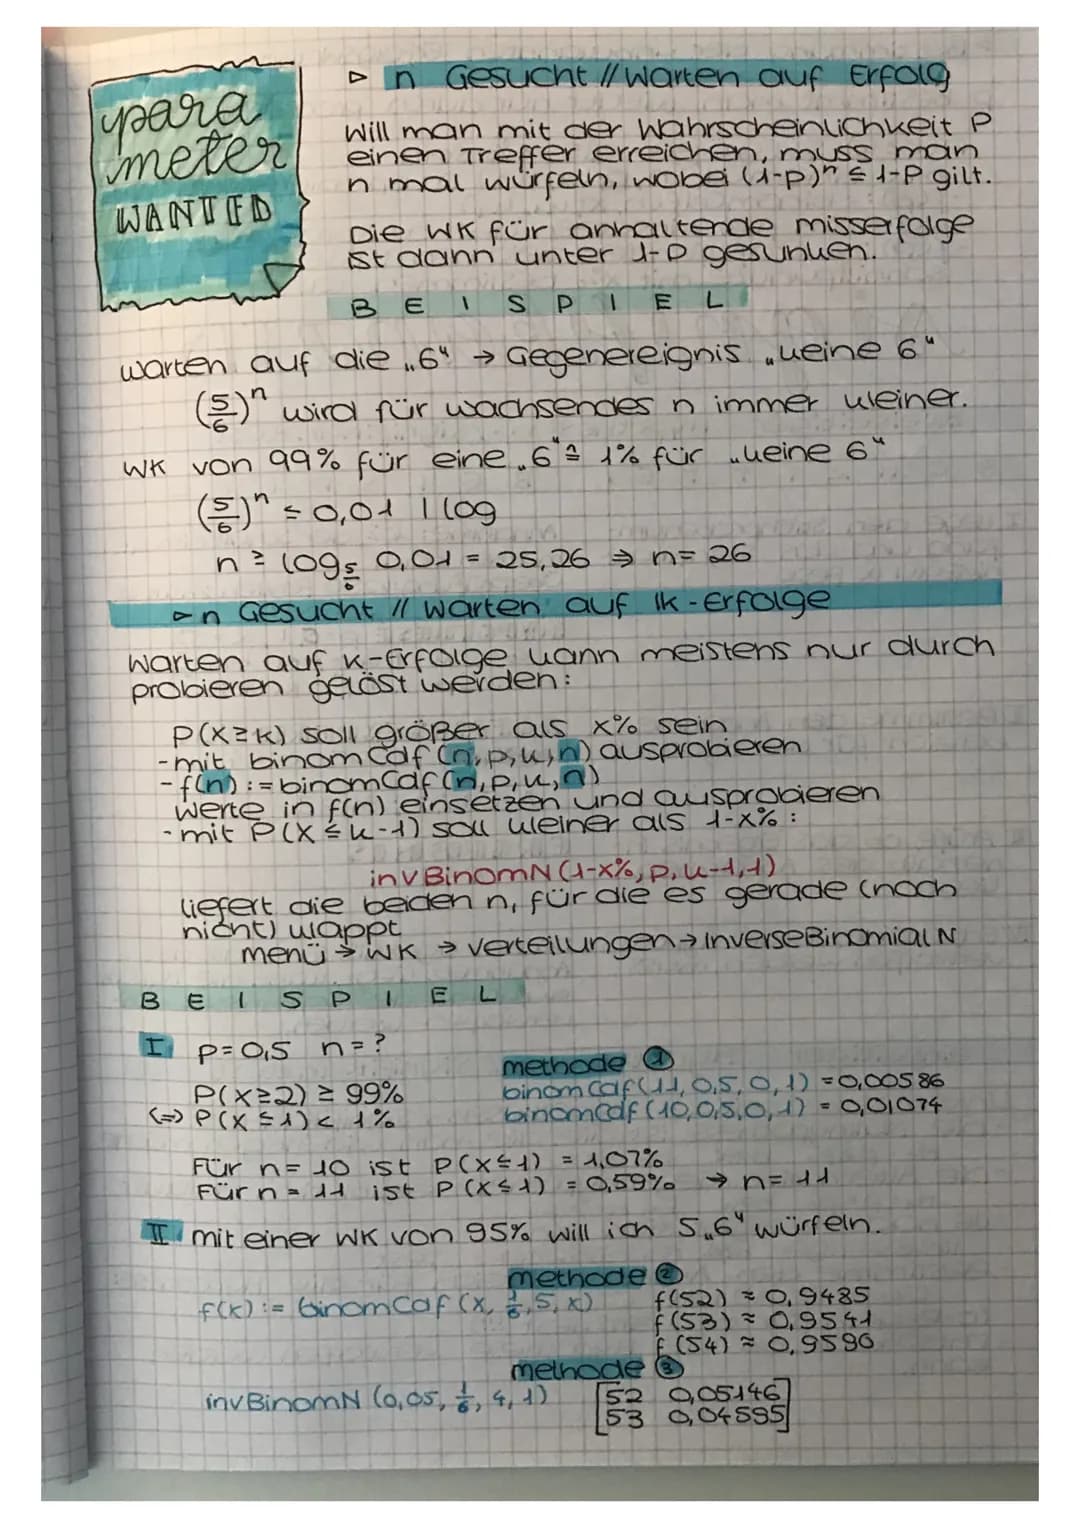 para
meter
WANTED
▷ n Gesucht // Warten auf Erfolg
Will man mit der Wahrscheinlichkeit P
einen Treffer erreichen, muss man
n mal würfeln, wobei (1-p)ⁿ ≤ 1-P gilt.
Die WK für anhaltende misserfolge
ist dann unter 1-P gesunken.
BEISPIEL
warten auf die „6“ → Gegenereignis „keine 6“
(5/6)ⁿ wird für wachsendes n immer kleiner.
WK von 99% für eine „6“ ≙ 1% für „keine 6“
(5/6)ⁿ ≤ 0,01 | log
n ≥ log 5/6 0,01 = 25,26 ⇒ n = 26
▷ n Gesucht // Warten auf k-Erfolge
Warten auf k-Erfolge kann meistens nur durch
probieren gelöst werden:
P(X≥k) soll größer als x% sein
- mit binomCdf(n,p,k,n) ausprobieren
- f(n) := binomCdf(n,p,k,n)
Werte in f(n) einsetzen und ausprobieren
- mit P(X≤k-1) soll kleiner als 1-x% :
invBinomN(1-x%,p,k-1,1)
liefert die beiden n, für die es gerade (noch
nicht) klappt
menü → WK → Verteilungen → InverseBinomial N
BEISPIEL
I p=0,5 n=?
methode ①
P(X≥2) ≥ 99% binomCdf(11,0,5,0,1) = 0,00586
(=) P(X≤1) < 1% binomCdf(10,0,5,0,1) = 0,01074
Für n = 10 ist P(X≤1) = 1,07%
Für n = 11 ist P(X≤1) = 0,59% → n = 11
II mit einer WK von 95% will ich 5„6“ würfeln.
methode ②
f(x) := binomCdf(x, 1/6, 5, x) f(52) ≈ 0,9485
f(53) ≈ 0,9541
f(54) ≈ 0,9590
methode ③
invBinomN(0,05, 1/6, 4, 1) [52 0,05146
53 0,04595]